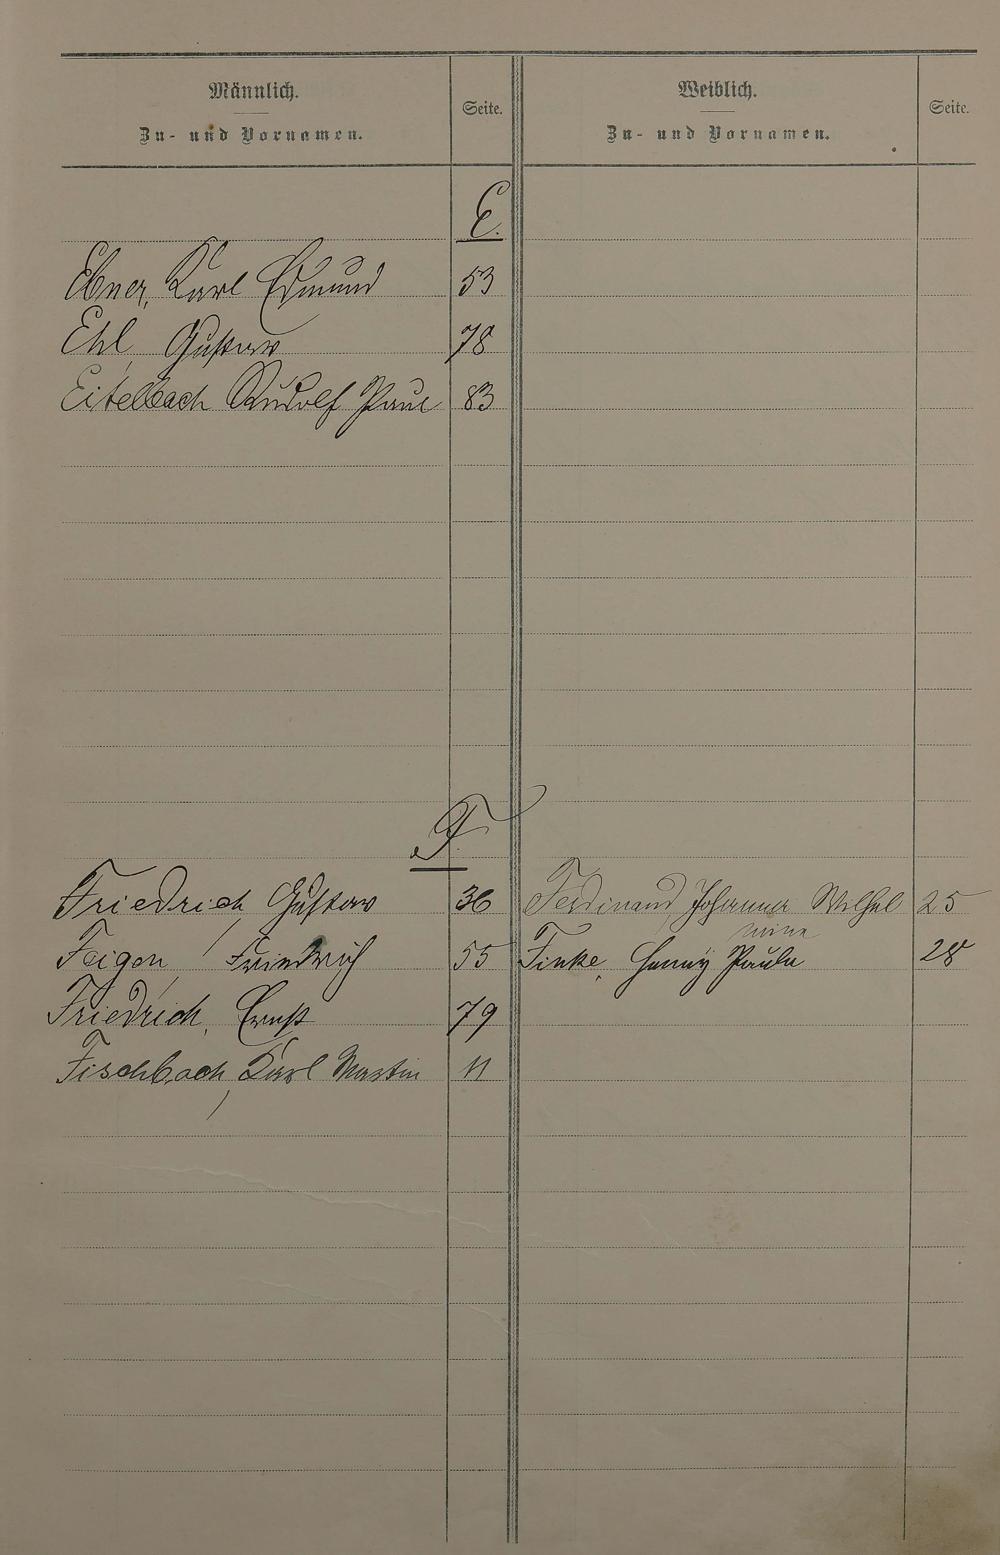 Männlich.
Zu- und Vornamen.
Seite.
Weiblich.
Zu- und Vornamen.
Seite.
E.
Ebner, Karl Edmund 53
Ehl, Gustav 78
Eitelbach Rudolf Paul 83
F.
Friedrich, Gustav 36
Ferdinand, Johanna Wilhel 25
mine
Feigen, Friedrich 55
Finke, Henny Paula 28
Friedrich, Ernst 79
Fischbach, Karl Martin 11